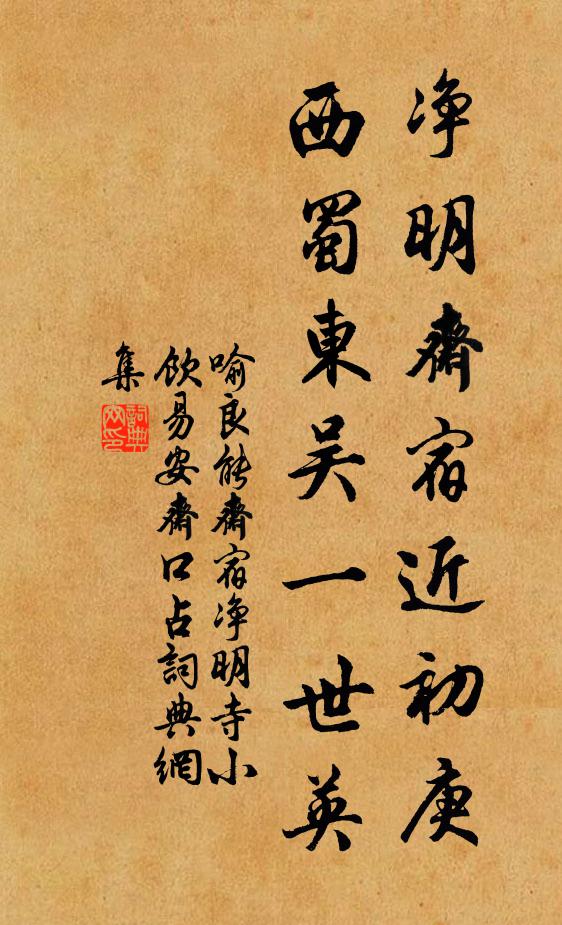 净明齋宿近初庚
西蜀東吴一世英
喻良能齋宿净明寺小
飲易安齋口占詞典網
集
詞典
网印